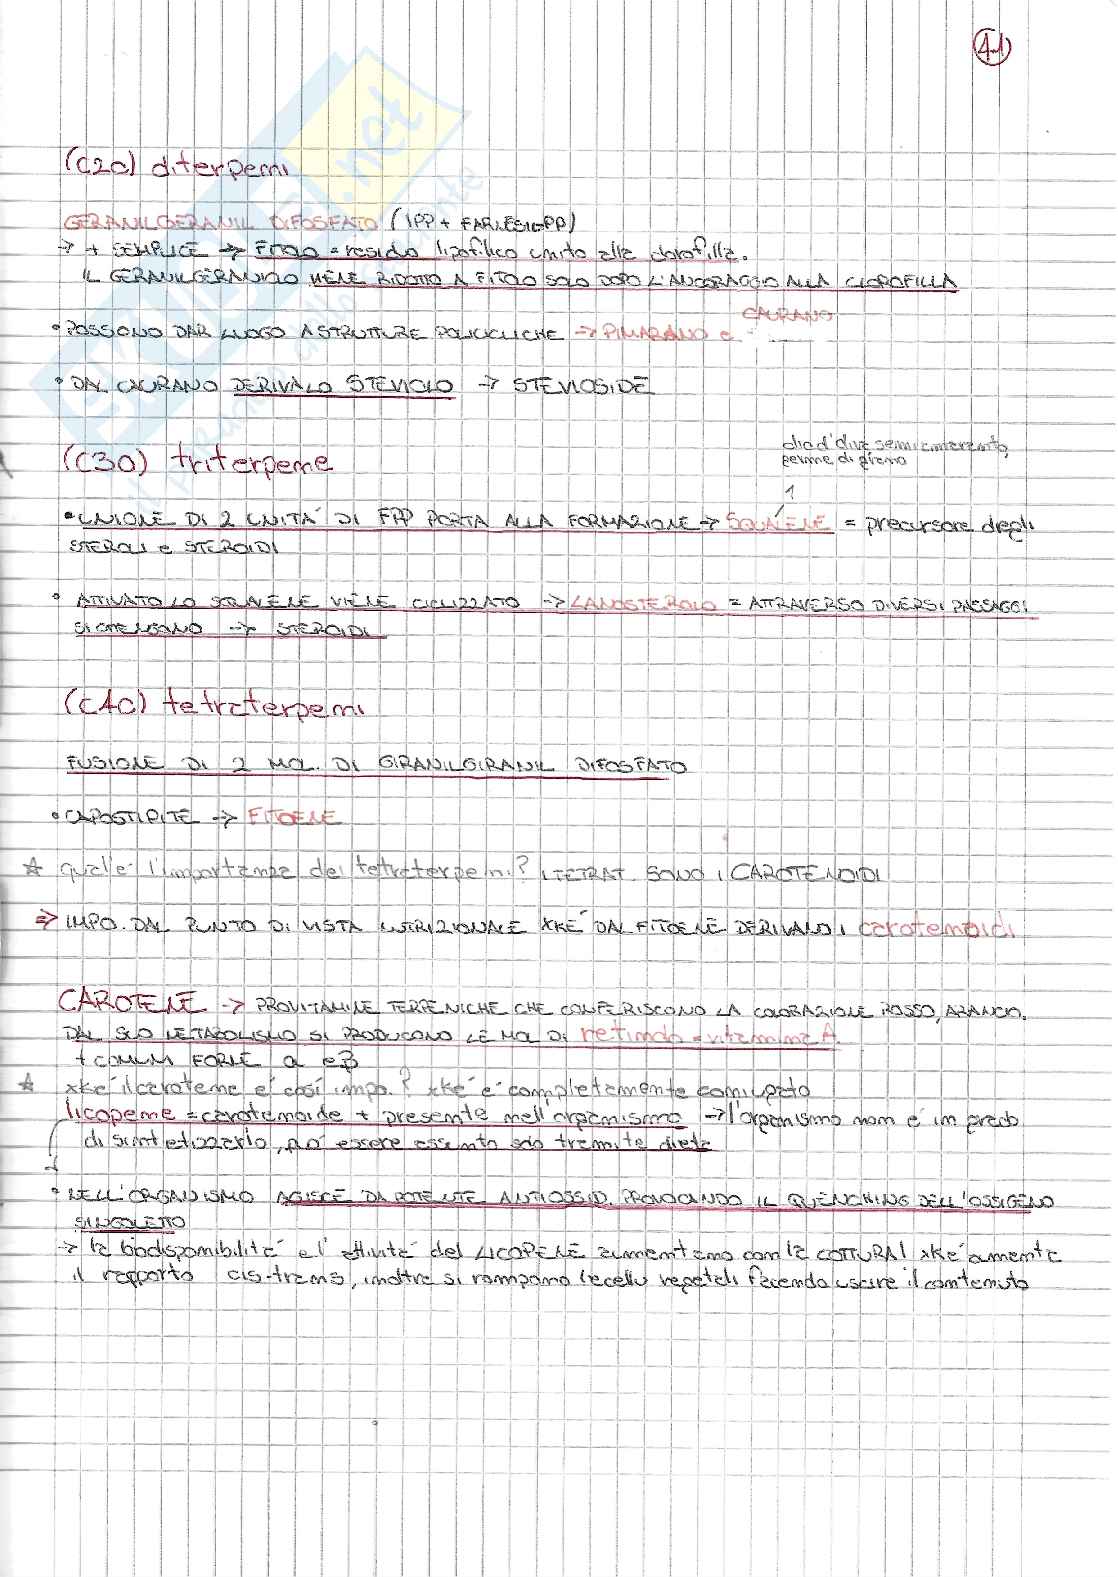 41
(C20) diterpeni
GERANILGERANIL DIFOSFATO (IPP + FARNESIL-PP)
→ + SEMPLICE → FITOLO = residuo lipofilico unito alla clorofilla.
IL GERANILGERANIOLO VIENE RIDOTTO A FITOLO SOLO DOPO L'ANCORAGGIO ALLA CLOROFILLA
• POSSONO DAR LUOGO A STRUTTURE POLICICLICHE → PIMARANO e CAURANO
• DAL CAURANO DERIVA LO STEVIOLO → STEVIOSIDE
(C30) triterpene
olio d'oliva, semi amaranto,
germe di grano
• UNIONE DI 2 UNITA' DI FPP PORTA ALLA FORMAZIONE → SQUALENE = precursore degli
STEROLI e STEROIDI
• ATTIVATO LO SQUALENE VIENE CICLIZZATO → LANOSTEROLO = ATTRAVERSO DIVERSI PASSAGGI
SI OTTENGONO → STEROIDI
(C40) tetraterpeni
FUSIONE DI 2 MOL. DI GIRANILGIRANIL DIFOSFATO
• CAPOSTIPITE → FITOENE
☆ qual è l'importanza dei tetraterpeni? I TETRAT. SONO I CAROTENOIDI
⇒ IMPO. DAL PUNTO DI VISTA NUTRIZIONALE XKÉ DAL FITOENE DERIVANO I carotenoidi
CAROTENE → PROVITAMINE TERPENICHE CHE CONFERISCONO LA COLORAZIONE ROSSO, ARANCIO.
DAL SUO METABOLISMO SI PRODUCONO LE MOL DI retinolo = vitamina A
+ COMUNI FORME α e β
☆ xké il carotene é così impo.? xké é completamente coniugato
licopene = carotenoide + presente nell'organismo → l'organismo non é in grado
di sintetizzarlo, può essere assunto solo tramite dieta
• NELL'ORGANISMO AGISCE DA POTENTE ANTIOSSID. PROVOCANDO IL QUENCHING DELL'OSSIGENO
SINGOLETTO
→ la biodisponibilità e l'attività del LICOPENE aumentano con la COTTURA! xké aumenta
il rapporto cis-trans, inoltre si rompono le cellu vegetali facendo uscire il contenuto